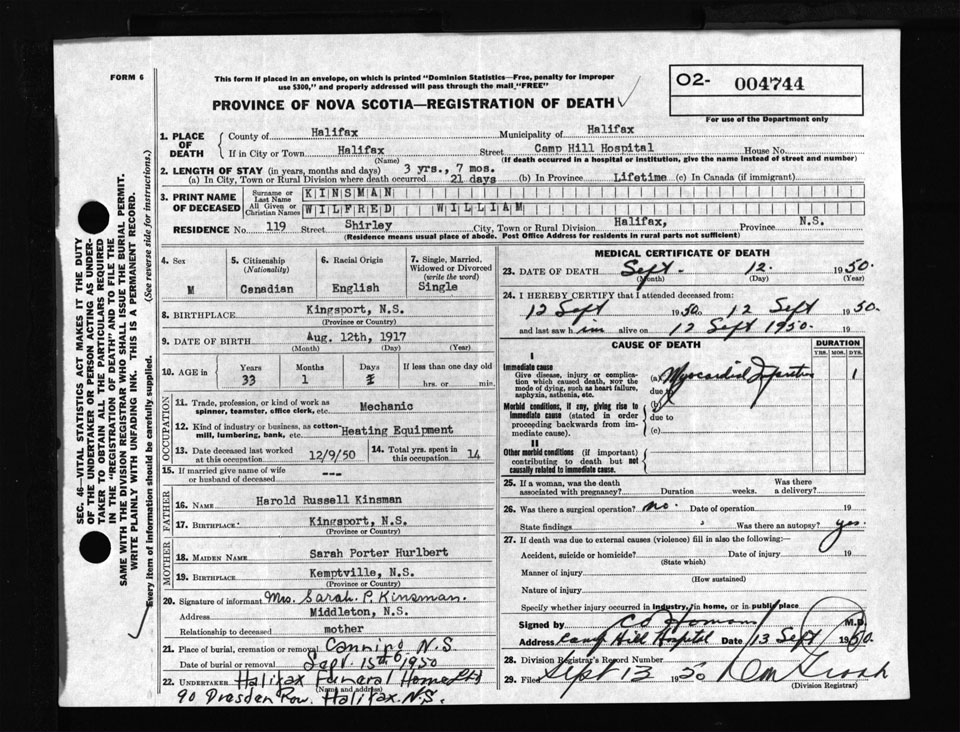 FORM 6
This form if placed in an envelope, on which is printed "Dominion Statistics—Free, penalty for improper
use $300," and properly addressed will pass through the mail "FREE"
O2- 004744
For use of the Department only
PROVINCE OF NOVA SCOTIA—REGISTRATION OF DEATH
1. PLACE OF DEATH
County of Halifax Municipality of Halifax
If in City or Town Halifax Street Camp Hill Hospital House No.
(Name) (If death occurred in a hospital or institution, give the name instead of street and number)
2. LENGTH OF STAY (in years, months and days) 3 yrs., 7 mos.
(a) In City, Town or Rural Division where death occurred 21 days (b) In Province Lifetime (c) In Canada (if immigrant)
3. PRINT NAME OF DECEASED
Surname or Last Name KINSMAN
All Given or Christian Names WILFRED WILLIAM
RESIDENCE No. 119 Street Shirley City, Town or Rural Division Halifax, Province N.S.
(Residence means usual place of abode. Post Office Address for residents in rural parts not sufficient)
4. Sex
M
5. Citizenship
(Nationality)
Canadian
6. Racial Origin
English
7. Single, Married,
Widowed or Divorced
(write the word)
Single
8. BIRTHPLACE Kingsport, N.S.
(Province or Country)
9. DATE OF BIRTH Aug. 12th, 1917
(Month) (Day) (Year)
10. AGE in
Years Months Days If less than one day old
33 1 hrs. or min.
OCCUPATION
11. Trade, profession, or kind of work as
spinner, teamster, office clerk, etc. Mechanic
12. Kind of industry or business, as cotton-
mill, lumbering, bank, etc. Heating Equipment
13. Date deceased last worked
at this occupation 12/9/50
14. Total yrs. spent in
this occupation 14
15. If married give name of wife
or husband of deceased ---
FATHER
16. NAME Harold Russell Kinsman
17. BIRTHPLACE Kingsport, N.S.
(Province or Country)
MOTHER
18. MAIDEN NAME Sarah Porter Hurlbert
19. BIRTHPLACE Kemptville, N.S.
(Province or Country)
20. Signature of informant Mrs. Sarah P. Kinsman.
Address Middleton, N.S.
Relationship to deceased mother
21. Place of burial, cremation or removal Canning N.S
Date of burial or removal Sept. 15th 1950
22. UNDERTAKER Halifax Funeral Home Ltd
(Name and address)
90 Dresden Row. Halifax. N.S.
MEDICAL CERTIFICATE OF DEATH
23. DATE OF DEATH Sept. 12. 1950.
(Month) (Day) (Year)
24. I HEREBY CERTIFY that I attended deceased from:
12 Sept 1950 to 12 Sept 1950
and last saw him alive on 12 Sept 1950. 19
CAUSE OF DEATH DURATION
YRS. MOS. DYS.
I
Immediate cause
Give disease, injury or complica-
tion which caused death, NOT the
mode of dying, such as heart failure,
asphyxia, asthenia, etc.
(a) Myocardial Infarction 1
due to
Morbid conditions, if any, giving rise to
immediate cause (stated in order
proceeding backwards from im-
mediate cause).
(b)
due to
(c)
II
Other morbid conditions (if important)
contributing to death but not
causally related to immediate cause.
25. If a woman, was the death
associated with pregnancy? Duration weeks. Was there
a delivery?
26. Was there a surgical operation? no. Date of operation 19
State findings Was there an autopsy? yes.
27. If death was due to external causes (violence) fill in also the following:
Accident, suicide or homicide? Date of injury 19
(State which)
Manner of injury
(How sustained)
Nature of injury
Specify whether injury occurred in industry, in home, or in public place
Signed by M.D.
Address Camp Hill Hospital Date 13 Sept 1950.
28. Division Registrar's Record Number
29. Filed Sept 13 1950
(Division Registrar)
SEC. 46—VITAL STATISTICS ACT MAKES IT THE DUTY
OF THE UNDERTAKER OR PERSON ACTING AS UNDER-
TAKER TO OBTAIN ALL THE PARTICULARS REQUIRED
IN THE "REGISTRATION OF DEATH" AND TO FILE THE
SAME WITH THE DIVISION REGISTRAR WHO SHALL ISSUE THE BURIAL PERMIT.
WRITE PLAINLY WITH UNFADING INK. THIS IS A PERMANENT RECORD.
Every item of information should be carefully supplied. (See reverse side for instructions.)